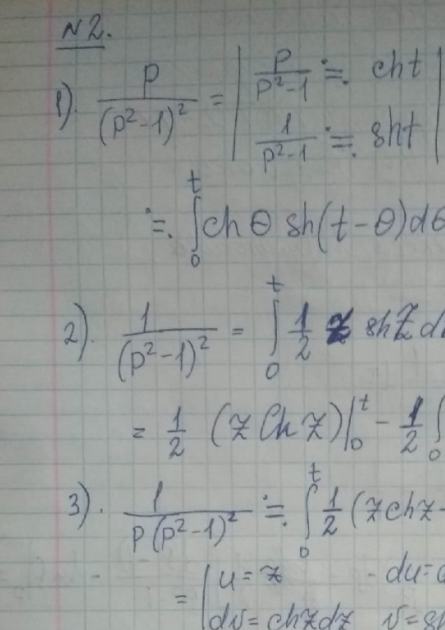 №2.
1). p/(p²-1)² = | p/(p²-1) ≓ cht
1/(p²-1) ≓ sht |
≓ ∫₀ᵗ ch θ sh(t-θ)dθ
2). 1/(p²-1)² = ∫₀ᵗ 1/2 z shz d
= 1/2 (z Ch z)|₀ᵗ - 1/2 ∫₀
3). 1/(p(p²-1)²) ≓ ∫₀ᵗ 1/2 (zchz-
= | u=z - du=
dv=chzdz v=s